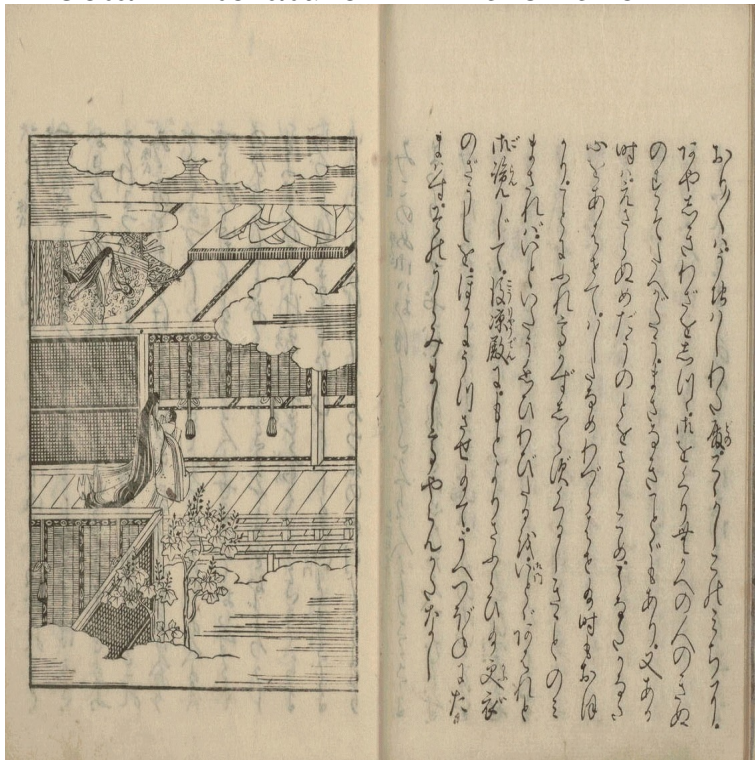 おり〳〵は、うちはしわた殿、こゝかしこのみちに、
あやしきわざをしつゝ、御をくりむかへの人のきぬ
のすそたへがたう、まさなきことゞもあり。又ある
時は、えさらぬめだうのとをさしこめ、こなたかなた
心をあはせて、はしたなめわづらはせ給時もおほ
かり。ことにふれてかずしらずくるしきことのみ
まされば、いといたう思ひわびたるを、いとゞあはれと
御覧じて、後凉殿に、もとよりさふらひ給更衣
のざうしを、ほかにうつさせ給て、うへつぼねにた
まはす。そのうらみましてやらんかたなし